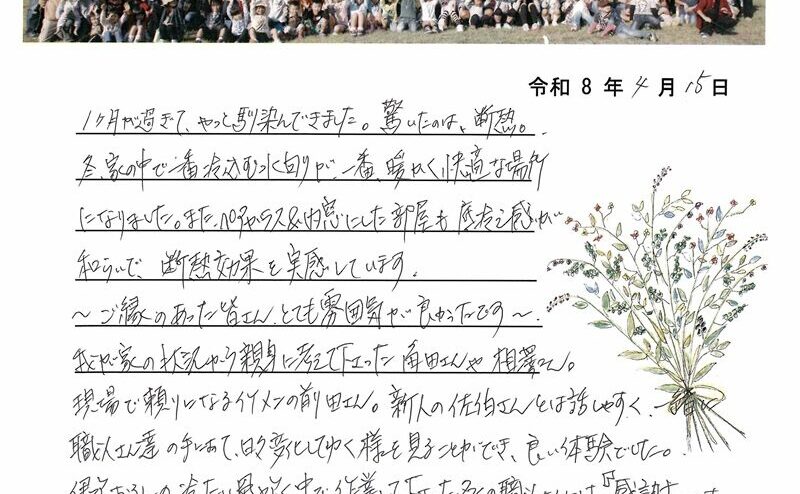 令和 8 年 4 月 15 日
1ヶ月が過ぎて、やっと馴染んできました。驚いたのは、断熱。
冬、家の中で一番冷え込む水回りが、一番、暖かく快適な場所
になりました。また、ペアガラス&内窓にした部屋も底冷え感が
和らいで、断熱効果を実感しています。
〜ご縁のあった皆さん、とても雰囲気が良かったです〜
我が家の状況から親身に考えて下さった角田さんや相澤さん。
現場で頼りになるイケメンの前田さん。新人の佐伯さんとは話しやすく、一緒に
職人さん達の手によって、日々変化してゆく様を見ることができ、良い体験でした。
の冷たい風吹く中で作業して下さった